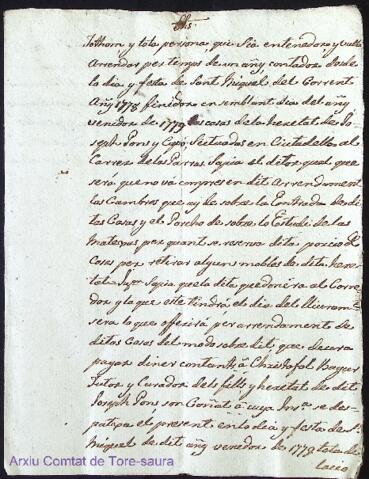 Jhs
Tothom y tota persona, que sia entenedora y vulla
Arrendar per temps de un añy contador desde
lo dia y festa de Sant Miquel del Corrent
Añy 1778 finidor en semblant dias del añy
venidor de 1779 las casas de la heretat de Jo-
seph Pons y Capó, Situadas en Ciutadella al
Carrer de las Parras Sapia el detor qual que
será que no va compres en dit Arrendament
las Cambras que ay de sobre la Entrada de di-
tas Casas y el Porcho de sobre lo Estudi de las
Matexas per quant se reserva dita porció de
Casas per retirar alguns mobles de dita here-
tat. Sapia que la dita que donira al Corre-
dor y la que este tindrá el dia del lliurament
sera lo que oferirá per arrendament de
ditas Casas del modo sobre dit, que deura
pagar diner contants á Christofol Bagur
Tutor y Curador dels fills y heretat de dit
Joseph Pons son Coñat á cuya se des-
patxa el present en lo dia y festa de S.
Miquel de dit añy venidor de 1779 tota de
lacio
Arxiu Comtat de Tore-saura